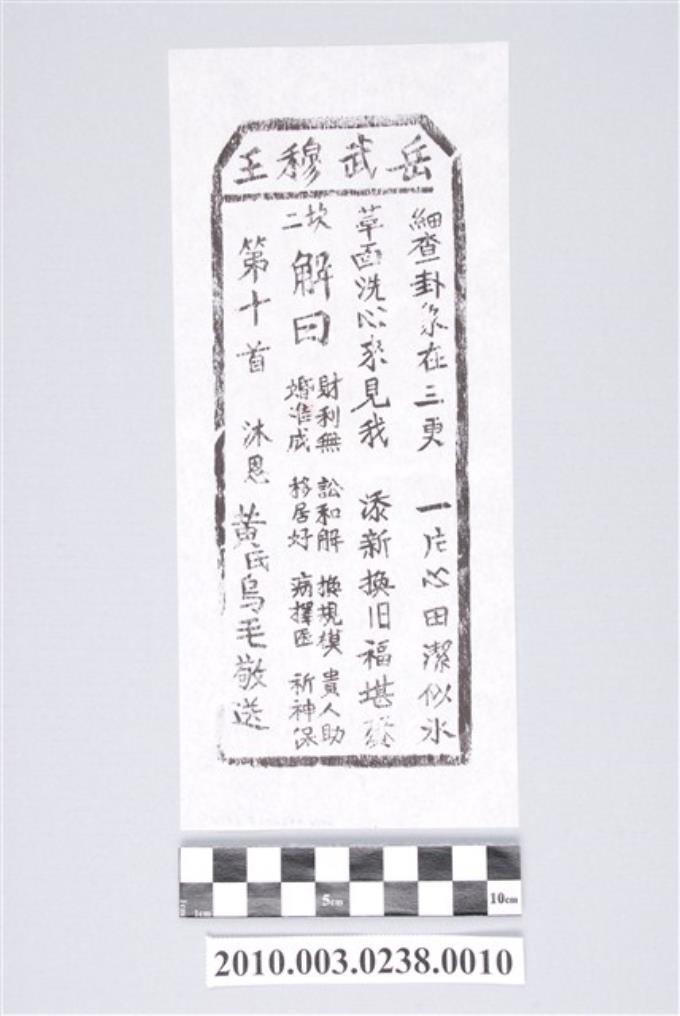 岳武穆王
細查卦象在三更 一片心田潔似氷
革面洗心來見我 添新換旧福堪登
坎二
解曰
財利無 訟和解 換規模 貴人助
婚准成 移居好 病擇医 祈神保
第十首 沐恩 黃氏烏毛敬送
1cm 5cm 10cm
2010.003.0238.0010